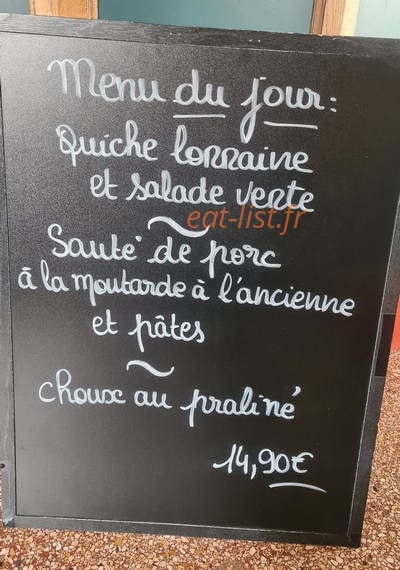 Menu du jour:
Quiche lorraine
et salade verte
eat-list.fr
~
Sauté de porc
à la moutarde à l'ancienne
et pâtes
~
choux au praliné
14,90€